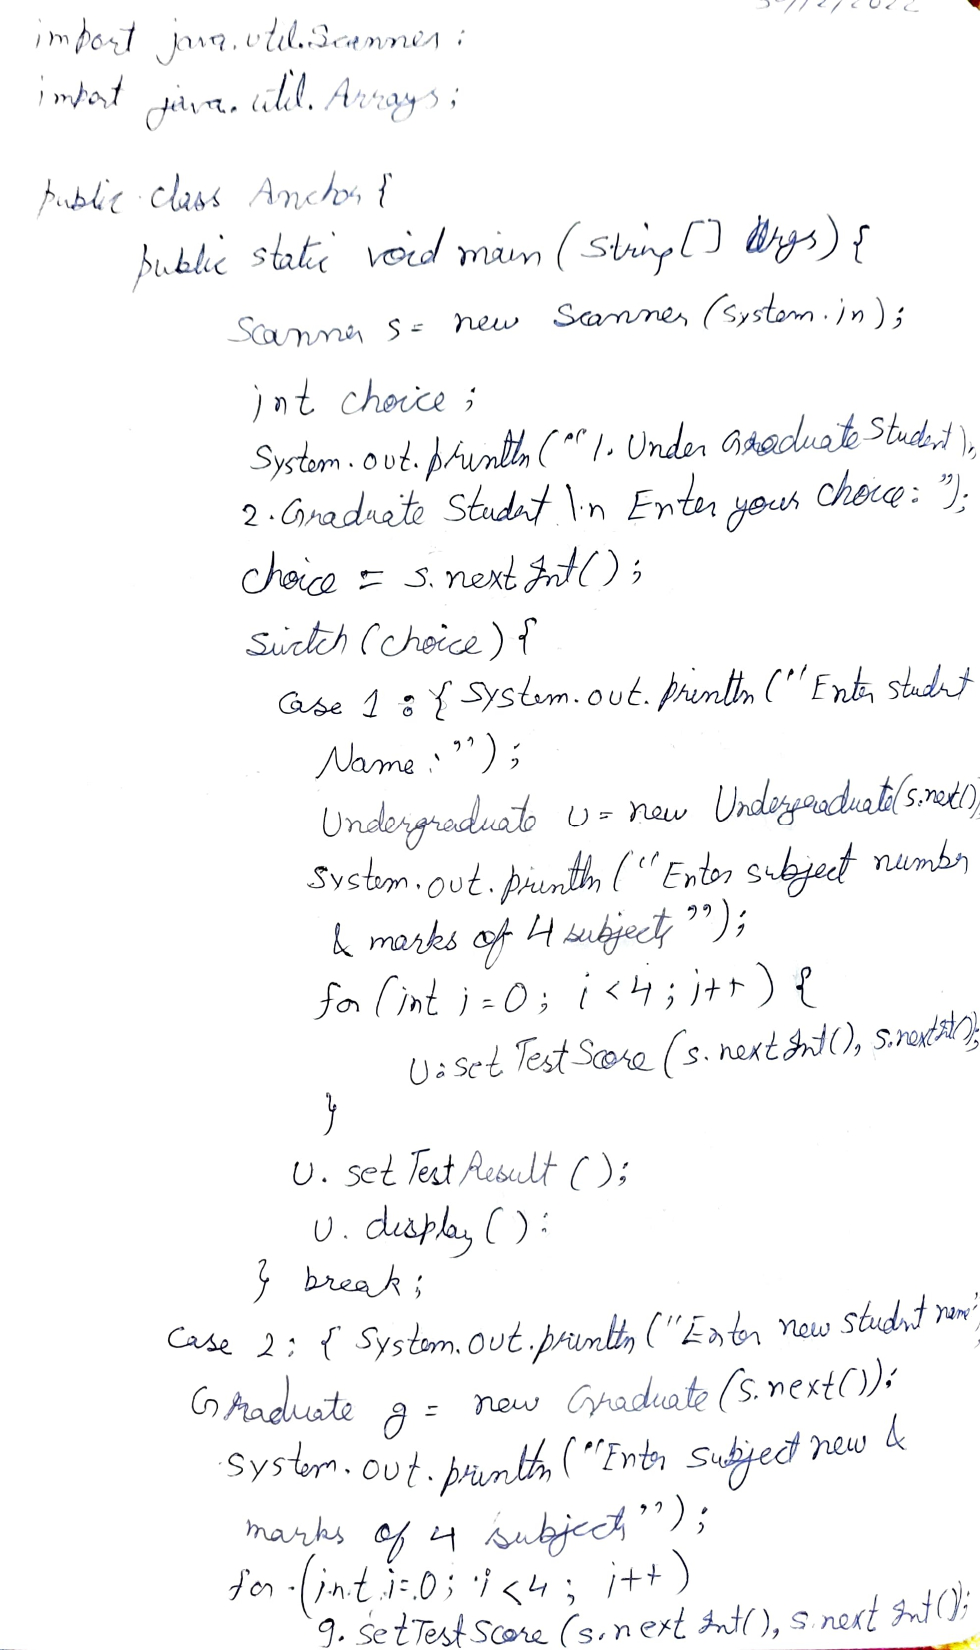 import java.util.Scanner;
import java.util.Arrays;
public class Anchor {
public static void main (String [] args) {
Scanner s = new Scanner (System.in);
int choice;
System.out.println ("1. Under Graduate Student \n
2. Graduate Student \n Enter your choice: ");
choice = s.nextInt();
switch (choice) {
case 1 : { System.out.println ("Enter student
Name : ");
Undergraduate U = new Undergraduate(s.next()
System.out.println ("Enter subject number
& marks of 4 subjects");
for (int i = 0; i < 4; i++) {
U.set TestScore (s.nextInt(), s.nextInt());
}
U. set TestResult ();
U. display () :
} break;
Case 2 : { System.out.println ("Enter new student name"
Graduate g = new Graduate (s.next());
System.out.println ("Enter subject new &
marks of 4 subject");
for (int i=0; i<4; i++)
g. setTestScore (s.nextInt(), s.nextInt());